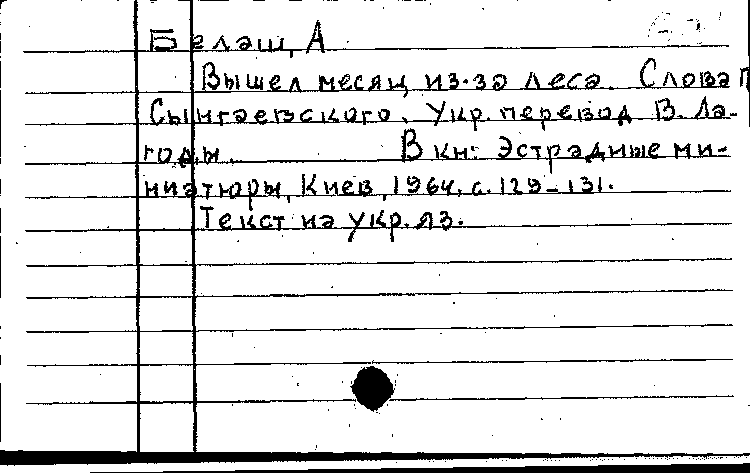 Белаш, А
Вышел месяц из-за леса. Слова П
Сынгаевского. Укр. перевод В. Ла-
годы. В кн: Эстрадные ми-
ниатюры, Киев, 1964, с. 129-131.
Текст на укр. яз.